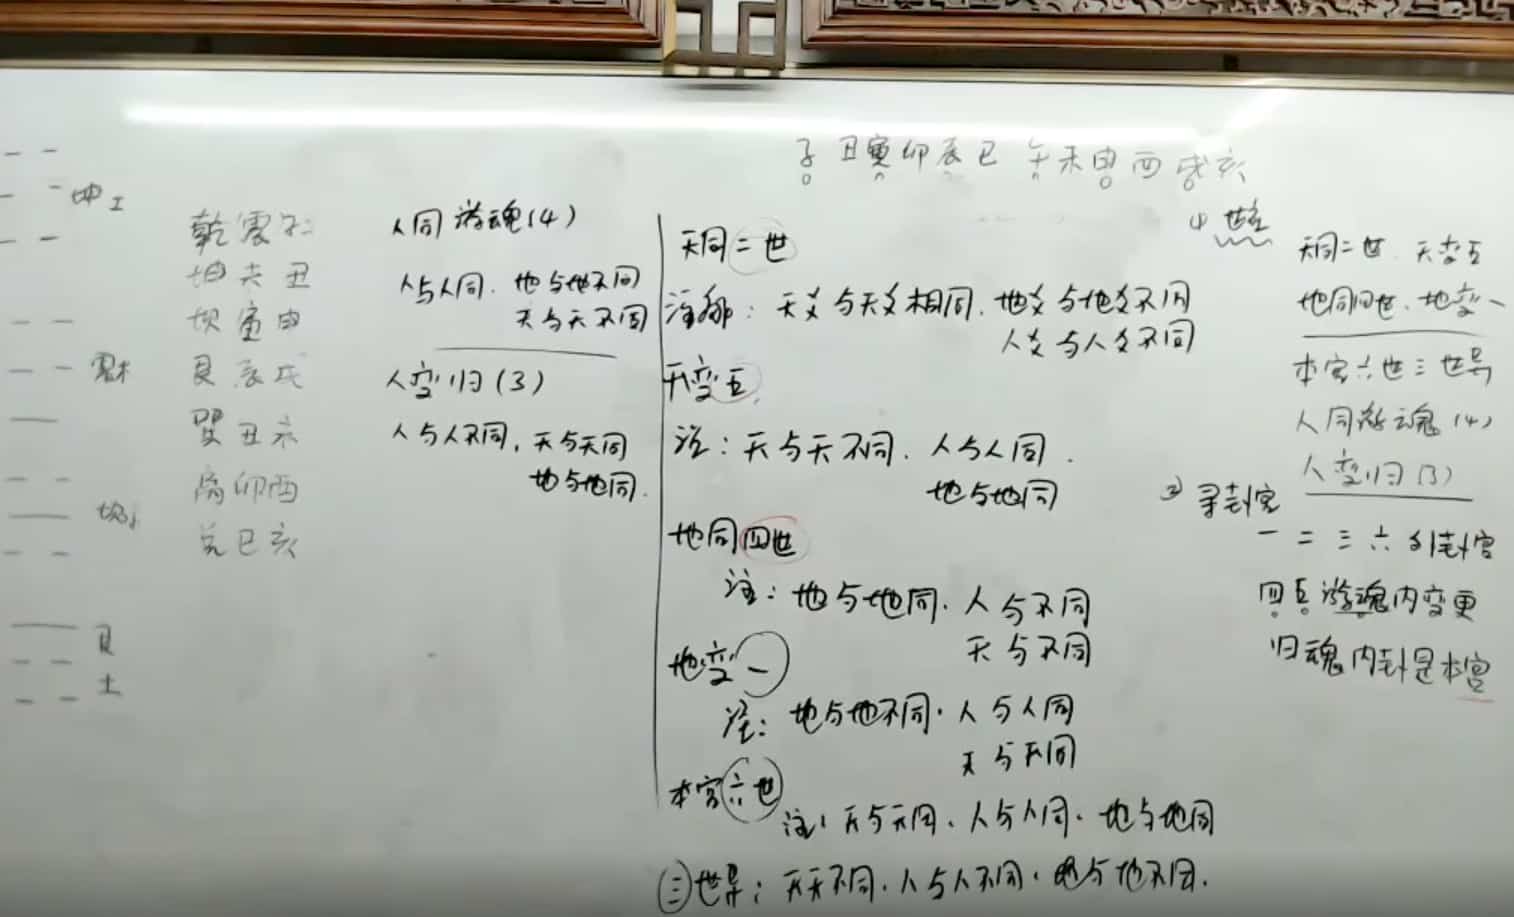 子丑寅卯辰巳 午未申酉戌亥
坤土
震木
坎水
艮
土
乾震子
坤未丑
坎寅申
艮辰戌
巽丑未
离卯酉
兑巳亥
人同游魂(4)
人与人同. 地与地不同
天与天不同
人变归(3)
人与人不同, 天与天同
地与地同.
天同二世
天爻与天爻相同. 地爻与地爻不同
人爻与人爻不同
天变五
注: 天与天不同. 人与人同.
地与地同
地同四世
注: 地与地同. 人与不同
天与不同
地变一
注: 地与地不同. 人与人同
天与天同
本宫六世
注: 天与天同. 人与人同. 地与地同
三世异: 天天不同. 人与人不同. 地与地不同.
天同二世. 天变五
地同四世. 地变一
本宫六世三世异
人同游魂(4)
人变归(3)
② 寻卦宫
一二三六外卦宫
四五游魂内变更
归魂内卦是本宫